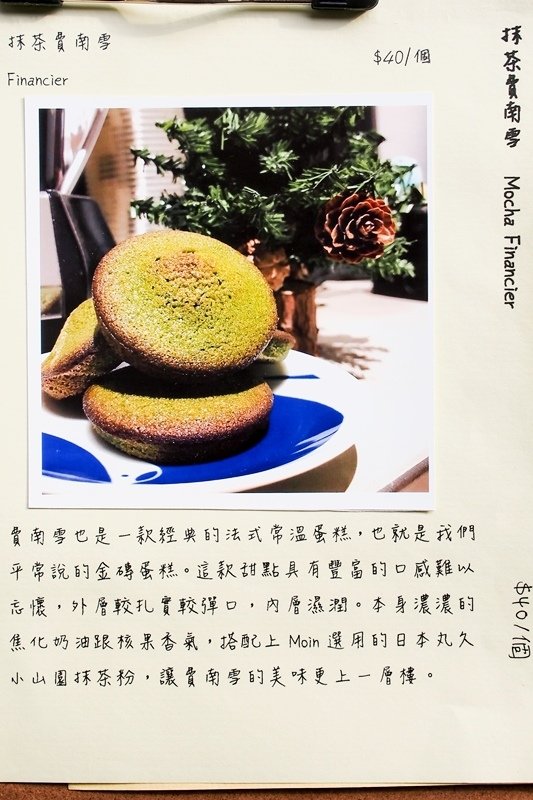 抹茶費南雪
$40/個
Financier
費南雪也是一款經典的法式常溫蛋糕，也就是我們
平常說的金磚蛋糕。這款甜點具有豐富的口感難以
忘懷，外層較扎實較彈口，內層濕潤。本身濃濃的
焦化奶油跟核果香氣，搭配上 Moin 選用的日本丸久
小山園抹茶粉，讓費南雪的美味更上一層樓。
抹茶費南雪 Mocha Financier
$40/個